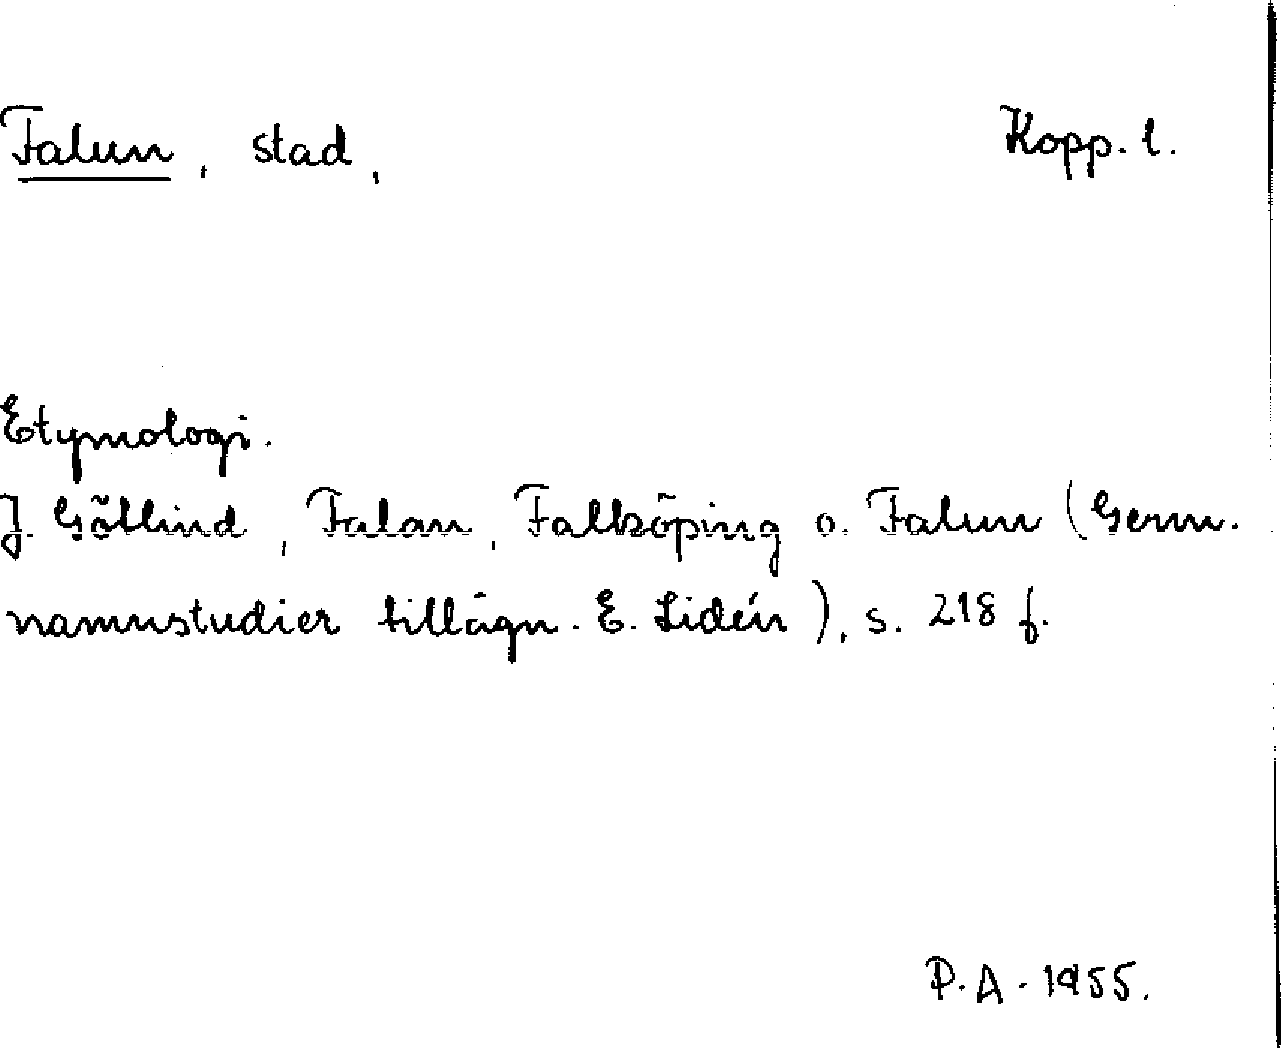 Falun, stad, Kopp. l.
Etymologi.
J. Götlind, Falan, Falköping o. Falun (Germ.
namnstudier tillägn. E. Lidén), s. 218 f.
P.A. 1955.